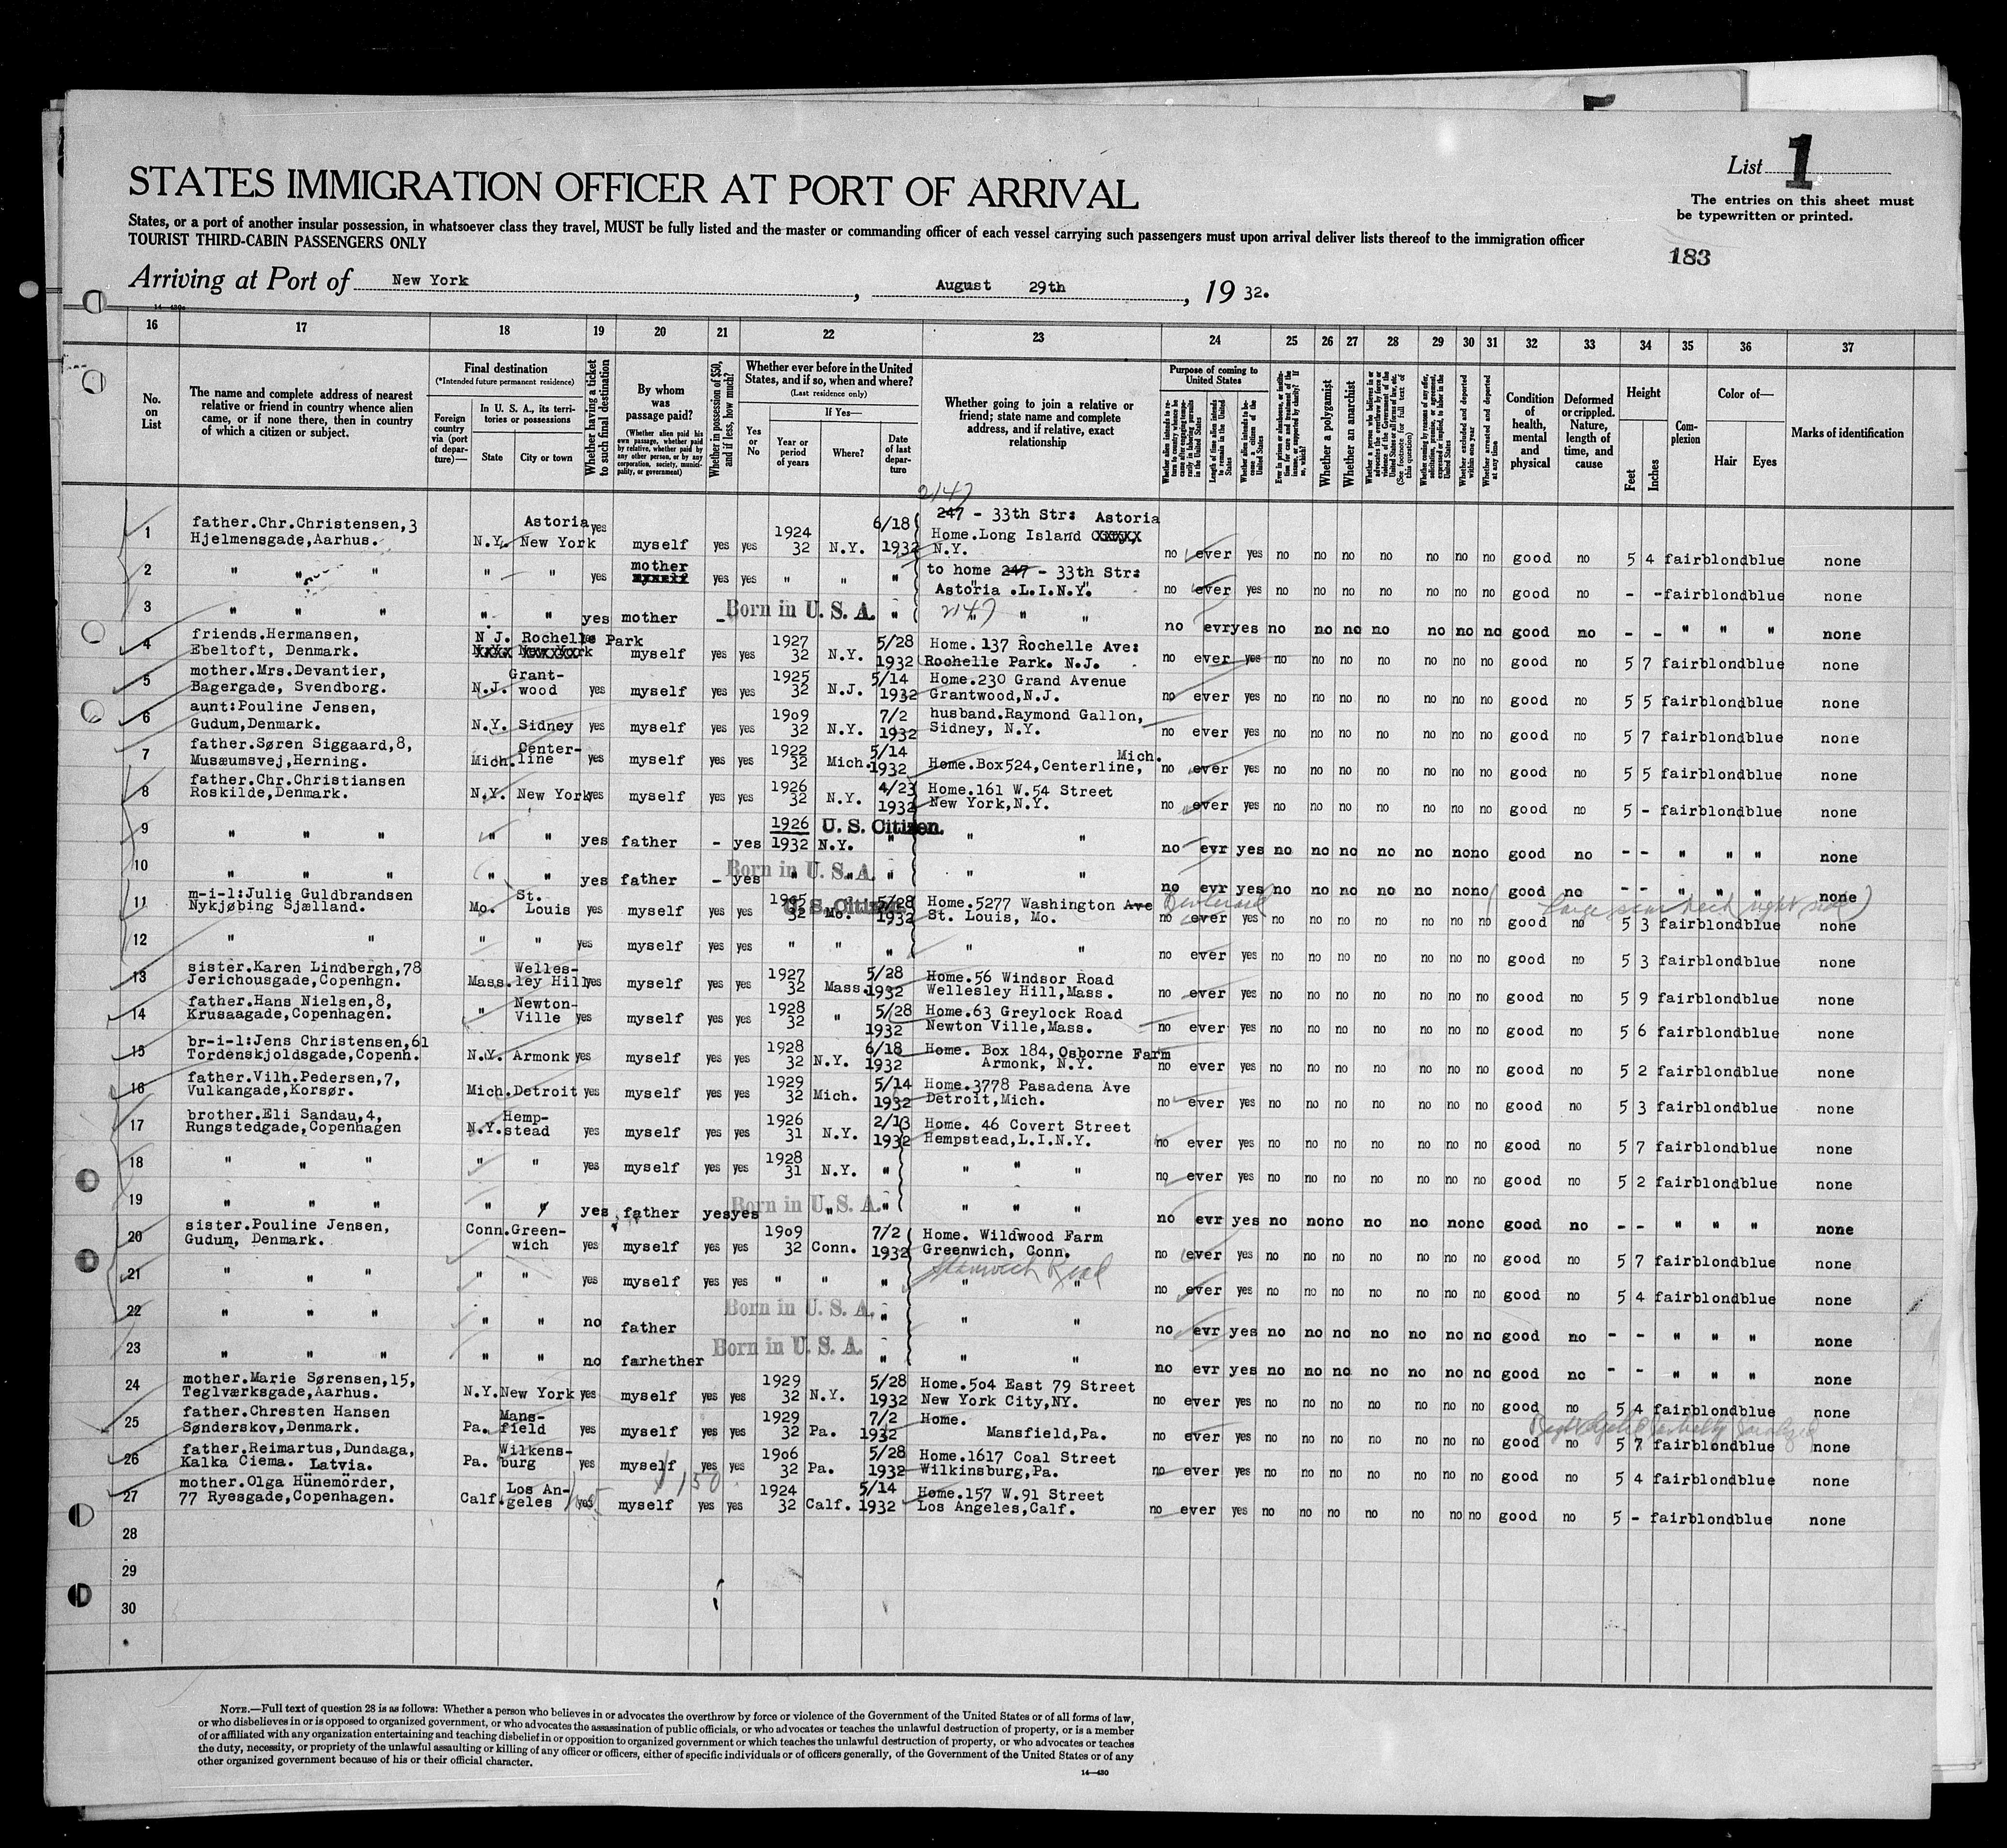 List 1
The entries on this sheet must
be typewritten or printed.
STATES IMMIGRATION OFFICER AT PORT OF ARRIVAL
States, or a port of another insular possession, in whatsoever class they travel, MUST be fully listed and the master or commanding officer of each vessel carrying such passengers must upon arrival deliver lists thereof to the immigration officer
TOURIST THIRD-CABIN PASSENGERS ONLY
183
Arriving at Port of New York, August 29th, 1932.
16 17 18 19 20 21 22 23 24 25 26 27 28 29 30 31 32 33 34 35 36 37
No. on List
The name and complete address of nearest relative or friend in country whence alien came, or if none there, then in country of which a citizen or subject.
Final destination
(*Intended future permanent residence)
Foreign country via (port of departure)—
In U. S. A., its territories or possessions
State City or town
Whether having a ticket to such final destination
By whom was passage paid?
(Whether alien paid his own passage, whether paid by relative, whether paid by any other person, or by any corporation, society, municipality, or government)
Whether in possession of $50, and if less, how much?
Whether ever before in the United States, and if so, when and where?
(Last residence only)
Yes or No
If Yes—
Year or period of years
Where?
Date of last departure
Whether going to join a relative or friend; state name and complete address, and if relative, exact relationship
Purpose of coming to United States
Whether a polygamist
Whether an anarchist
Whether excluded and deported within one year
Whether arrested and deported at any time
Condition of health, mental and physical
Deformed or crippled. Nature, length of time, and cause
Height
Feet Inches
Complexion
Color of—
Hair Eyes
Marks of identification
2147
1 father.Chr.Christensen,3 Hjelmensgade,Aarhus. N.Y. Astoria New York yes myself yes yes 1924 32 N.Y. 6/18 1932 247 - 33th Str: Astoria Home.Long Island N.Y. no ever yes no no no no no no no good no 5 4 fair blond blue none
2 " " " " " yes mother myself yes yes " " " to home 247 - 33th Str: Astoria .L.I.N.Y. no ever yes no no no no no no no good no - - fair blond blue none
3 " " " " " yes mother - Born in U. S. A. " 2147 " " " no evr yes no no no no no no no good no - - " " " none
4 friends.Hermansen, Ebeltoft, Denmark. N J. Rochelle Park myself yes yes 1927 32 N.Y. 5/28 1932 Home. 137 Rochelle Ave: Rochelle Park. N.J. no ever yes no no no no no no no good no 5 7 fair blond blue none
5 mother.Mrs.Devantier, Bagergade, Svendborg. N.J. Grant- wood yes myself yes yes 1925 32 N.J. 5/14 1932 Home.230 Grand Avenue Grantwood,N.J. no ever yes no no no no no no no good no 5 5 fair blond blue none
6 aunt:Pouline Jensen, Gudum,Denmark. N.Y. Sidney yes myself yes yes 1909 32 N.Y. 7/2 1932 husband.Raymond Gallon, Sidney, N.Y. no ever yes no no no no no no no good no 5 7 fair blond blue none
7 father.Søren Siggaard,8, Musæumsvej,Herning. Mich. Center- line yes myself yes yes 1922 32 Mich. 5/14 1932 Home.Box524,Centerline, Mich. no ever yes no no no no no no no good no 5 5 fair blond blue none
8 father.Chr.Christiansen Roskilde,Denmark. N.Y. New York yes myself yes yes 1926 32 N.Y. 4/23 1932 Home.161 W.54 Street New York,N.Y. no ever yes no no no no no no no good no 5 - fair blond blue none
9 " " " " " yes father - yes 1926 1932 U. S. Citizen. N.Y. " " " no evr yes no no no no no no no good no - - " " " none
10 " " " " " yes father - yes Born in U. S. A. " " " " " no evr yes no no no no no no no good no - - " " " none
11 m-i-l:Julie Guldbrandsen Nykjøbing Sjælland. Mo. St. Louis yes myself yes yes 32 U. S. Citizen Mo. 5/28 1932 Home.5277 Washington Ave St. Louis, Mo. no ever yes no no no no no no no good no 5 3 fair blond blue none
12 " " " " yes myself yes yes " " " " " no ever yes no no no no no no no good no 5 3 fair blond blue none
13 sister.Karen Lindbergh,78 Jerichousgade,Copenhgn. Mass. Welles- ley Hill yes myself yes yes 1927 32 Mass. 5/28 1932 Home.56 Windsor Road Wellesley Hill,Mass. no ever yes no no no no no no no good no 5 9 fair blond blue none
14 father.Hans Nielsen,8, Krusaagade,Copenhagen. " Newton- Ville yes myself yes yes 1928 32 " 5/28 1932 Home.63 Greylock Road Newton Ville,Mass. no ever yes no no no no no no no good no 5 6 fair blond blue none
15 br-i-l:Jens Christensen,61 Tordenskjoldsgade,Copenh. N.Y. Armonk yes myself yes yes 1928 32 N.Y. 6/18 1932 Home. Box 184,Osborne Farm Armonk, N.Y. no ever yes no no no no no no no good no 5 2 fair blond blue none
16 father.Vilh.Pedersen,7, Vulkangade,Korsør. Mich. Detroit yes myself yes yes 1929 32 Mich. 5/14 1932 Home.3778 Pasadena Ave Detroit,Mich. no ever yes no no no no no no no good no 5 3 fair blond blue none
17 brother.Eli Sandau,4, Rungstedgade,Copenhagen N.Y. Hemp- stead yes myself yes yes 1926 31 N.Y. 2/13 1932 Home. 46 Covert Street Hempstead,L.I.N.Y. no ever yes no no no no no no no good no 5 7 fair blond blue none
18 " " " " " yes myself yes yes 1928 31 N.Y. " " " " no ever yes no no no no no no no good no 5 2 fair blond blue none
19 " " " " " yes father yes yes Born in U. S. A. " " " " " no evr yes no no no no no no no good no - - " " " none
20 sister.Pouline Jensen, Gudum, Denmark. Conn. Green- wich yes myself yes yes 1909 32 Conn. 7/2 1932 Home. Wildwood Farm Greenwich, Conn. no ever yes no no no no no no no good no 5 7 fair blond blue none
21 " " " " " yes myself yes yes " " " Stanwich Road " " no ever yes no no no no no no no good no 5 4 fair blond blue none
22 " " " " " no father Born in U. S. A. " " " no evr yes no no no no no no no good no - - " " " none
23 " " " " " no farhether Born in U. S. A. " " " no evr yes no no no no no no no good no - - " " " none
24 mother.Marie Sørensen,15, Teglværksgade,Aarhus. N.Y. New York yes myself yes yes 1929 32 N.Y. 5/28 1932 Home.504 East 79 Street New York City,NY. no ever yes no no no no no no no good no 5 4 fair blond blue none
25 father.Chresten Hansen Sønderskov,Denmark. Pa. Mans- field yes myself yes yes 1929 32 Pa. 7/2 1932 Home. Mansfield,Pa. no ever yes no no no no no no no good no 5 7 fair blond blue none
26 father.Reimartus,Dundaga, Kalka Ciema. Latvia. Pa. Wilkens- burg yes myself yes yes 1906 32 Pa. 5/28 1932 Home.1617 Coal Street Wilkinsburg,Pa. no ever yes no no no no no no no good no 5 4 fair blond blue none
27 mother.Olga Hünemörder, 77 Ryesgade,Copenhagen. Calf. Los An- geles yes myself $150 yes yes 1924 32 Calf. 5/14 1932 Home.157 W.91 Street Los Angeles,Calf. no ever yes no no no no no no no good no 5 - fair blond blue none
28
29
30
NOTE.—Full text of question 28 is as follows: Whether a person who believes in or advocates the overthrow by force or violence of the Government of the United States or of all forms of law,
or who disbelieves in or is opposed to organized government, or who advocates the assassination of public officials, or who advocates or teaches the unlawful destruction of property, or is a member
of or affiliated with any organization entertaining and teaching disbelief in or opposition to organized government or which teaches the unlawful destruction of property, or who advocates or teaches
the duty, necessity, or propriety of the unlawful assaulting or killing of any officer or officers, either of specific individuals or of officers generally, of the Government of the United States or of any
other organized government because of his or their official character.
14—430